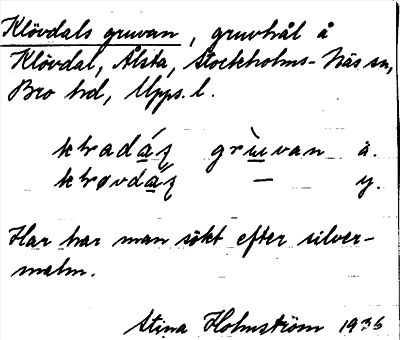 Klövdals gruvan, gruvhål å
Klövdal, Ålsta, Stockholms-Näs sn,
Bro hd, Upps. l.
gruvan ä.
— y.
Har har man sökt efter silver-
malm.
Stina Holmström 1936